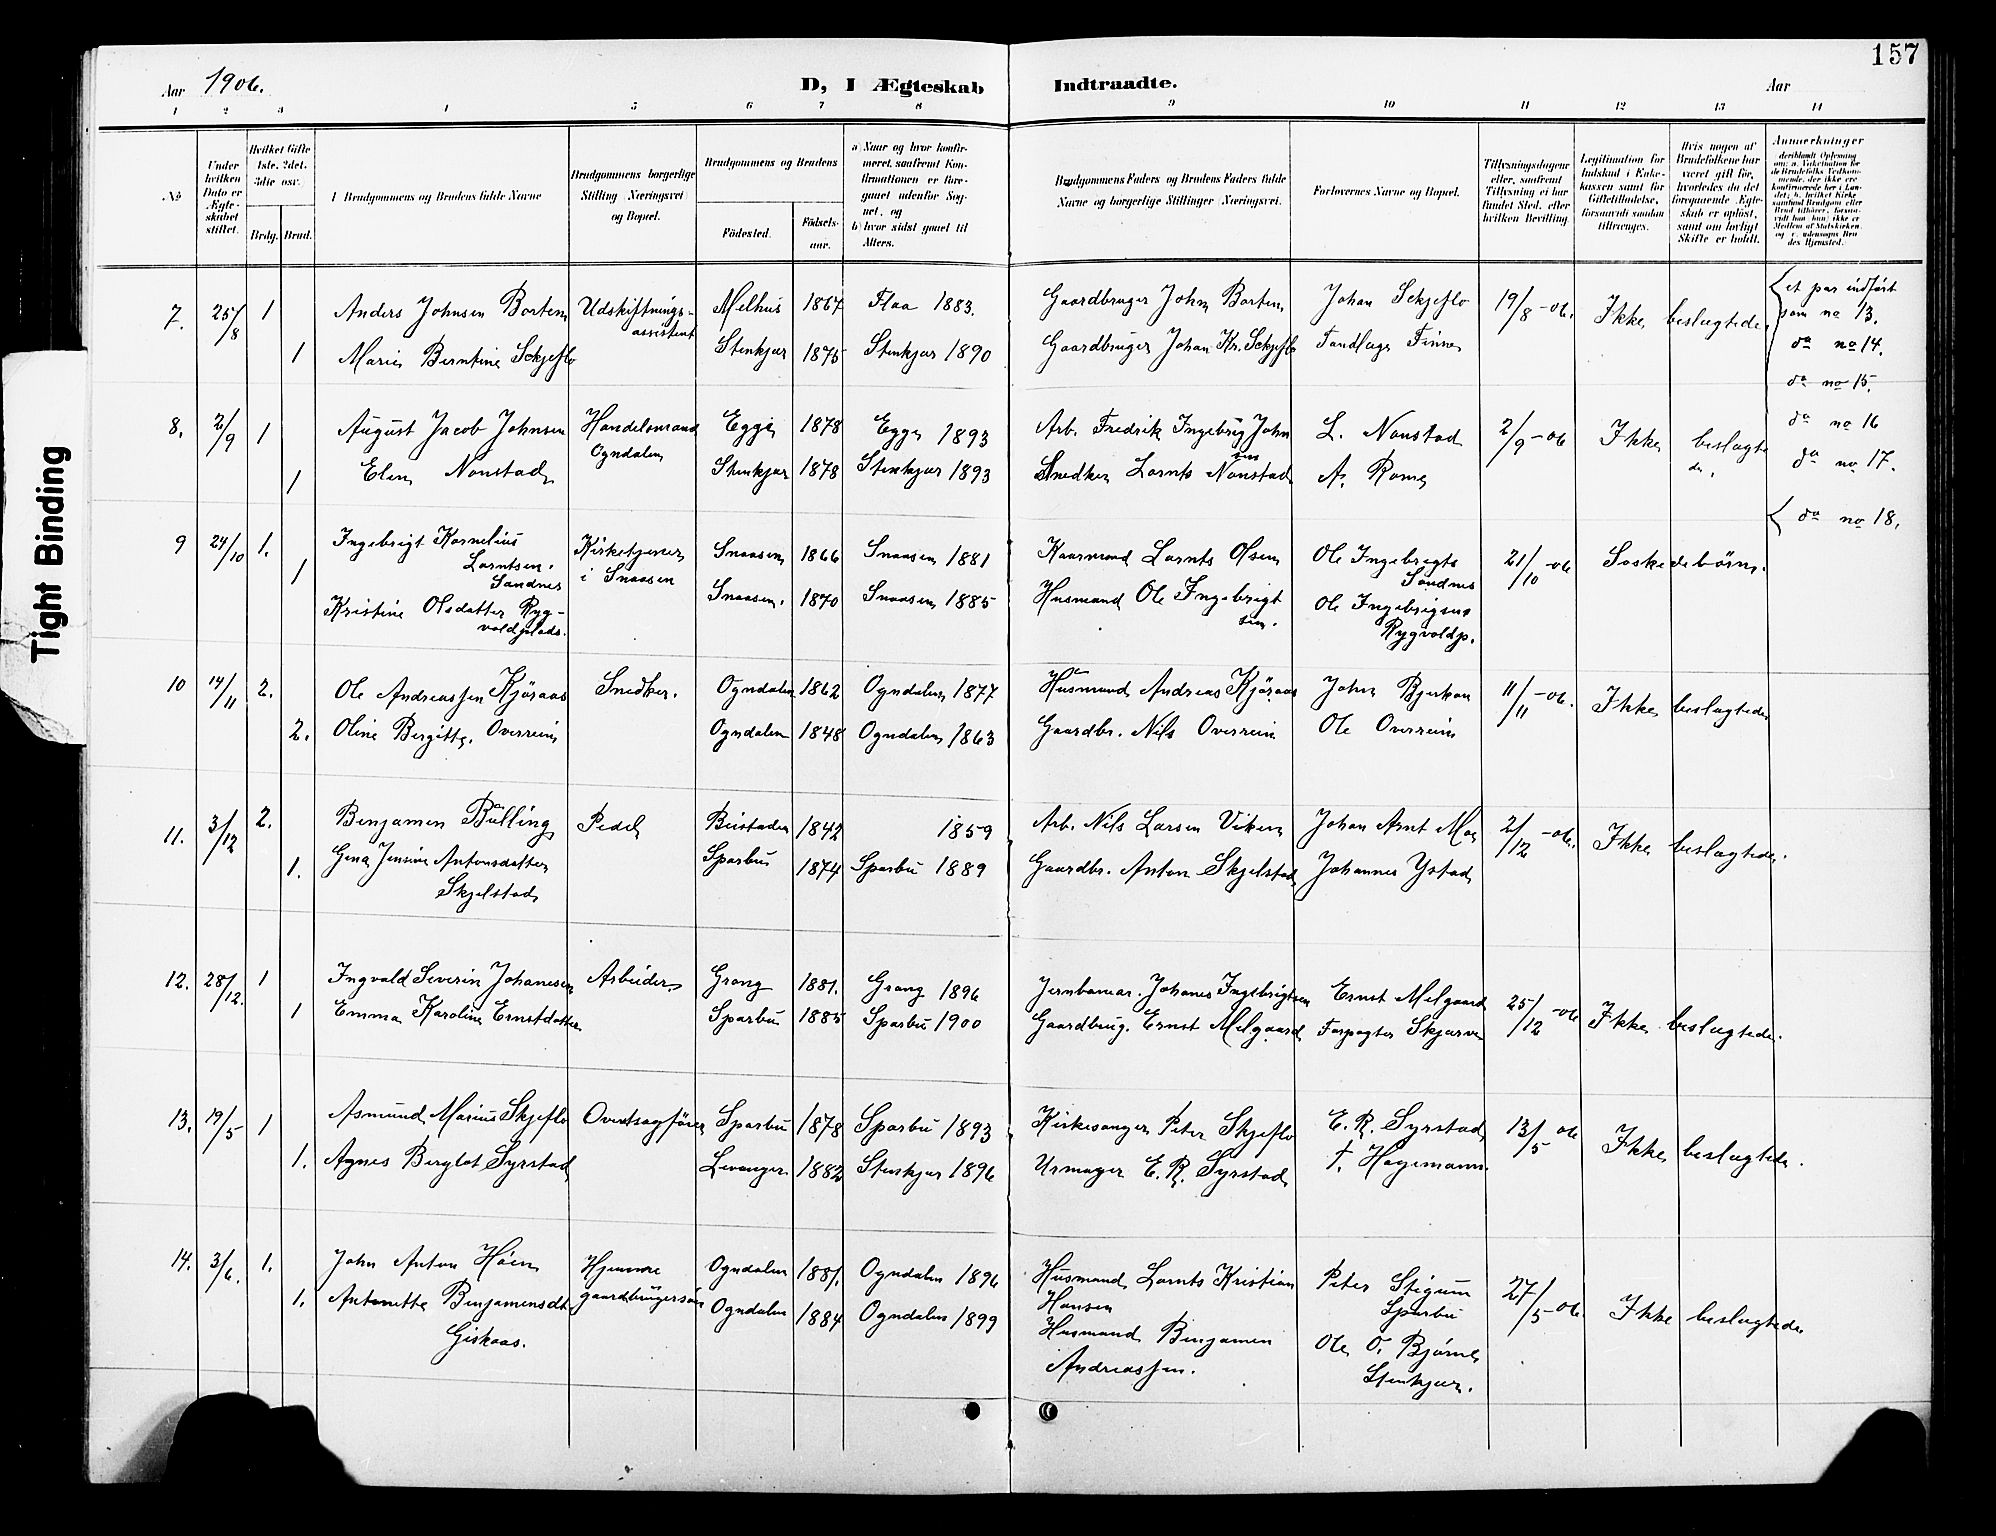 157
Aar 1906.
D, I Ægteskab Indtraadte.
Aar
1 2 3 4 5 6 7 8 9 10 11 12 13 14
No
Under hvilken Dato er Ægteskabet stiftet.
Hvilket Gifte 1ste, 2det, 3die osv.
Brdg. Brud.
Brudgommens og Brudens fulde Navne
Brudgommens borgerlige Stilling (Næringsvei) og Bopæl.
Brudgommens og Brudens
Fødested.
Fødselsaar.
a) Naar og hvor konfirmeret, saafremt Konfirmationen er foregaaet udenfor Sognet, og
b) hvor sidst gaaet til Alters.
Brudgommens Faders og Brudens Faders fulde Navne og borgerlige Stillinger (Næringsvei.
Forlovernes Navne og Bopæl.
Tillysningsdagene eller, saafremt Tillysning ei har fundet Sted, efter hvilken Bevilling
Legitimation for Indskud i Enkekassen samt for Giftetilladelse, forsaavidt saadan tiltrænges.
Hvis nogen af Brudefolkene har været gift før, hvorledes da det foregaaende Ægteskab er opløst, samt om lovligt Skifte er holdt.
Anmærkninger
7. 25/8 1 Anders Johnsen Borten Udskiftningsassistent Melhus 1867 Flaa 1883. Gaardbruger John Borten Johan Skjeflo 19/8-06. Ikke beslægtede
1 Marie Berntine Skjeflo Stenkjær 1875 Stenkjær 1890 Gaardbruger Johan Kr. Skjeflo Tandlæge Finne
et par indført som no 13.
do no 14.
do no 15.
do no 16
do no 17.
do no 18.
8. 2/9 1 August Jacob Johnsen Handelsmand Ogndalen Egge 1878 Egge 1893 Arb. Fredrik Ingebrig John sen L. Nonstad 2/9-06 Ikke beslægtede.
1 Elen Nonstad Stenkjær 1878 Stenkjær 1893 Snedker Lornts Nonstad A. Rome
9 24/10 1. Ingebrigt Kornelius Lorntsen Sandnes Kirketjener i Snaasen Snaasen 1866 Snaasen 1881 Kaarmand Lornts Olsen Ole Ingebrigts Sandnes 21/10-06 Søskedebørn.
1 Kristine Olsdatter Rygvoldplads. Snaasen. 1870 Snaasen 1885 Husmand Ole Ingebrigtsen. Ole Ingebrigsen Rygvoldp.
10 14/11 2. Ole Andreassen Kjøraas Snedker. Ogndalen 1862 Ogndalen 1877 Husmand Andreas Kjøraas John Bjerkan 11/11-06. Ikke beslægtede
2. Oline Bergitte Overrein Ogndalen 1848 Ogndalen 1863 Gaardbr. Nils Overrein Ole Overrein
11. 3/12 2. Benjamen Bølling Pedel Beistaden 1842 1859 Arb. Nils Larsen Viken Johan Arnt Moe 2/12-06. Ikke beslægtede.
1. Gina Jensine Antonsdatter Skjelstad Sparbu 1874 Sparbu 1889 Gaardbr. Anton Skjelstad Johannes Ystad
12. 28/12. 1 Ingvald Severin Johanesen Arbeider Grong 1881. Grong 1896 Jernbanear. Johanes Ingebrigtsen Ernst Melgaard 25/12-06 Ikke beslægtede.
1 Emma Karoline Ernstdatter Sparbu 1885 Sparbu 1900 Gaardbrug. Ernst Melgaard Forpagter Skjærve
13. 19/5 1 Asmund Marius Skjeflo Overtsagfører Sparbu 1878 Sparbu 1893 Kirkesanger Peter Skjeflo E. R. Syrstad 13/5 06 Ikke beslægtede.
1. Agnes Berglot Syrstad Levanger 1882 Stenkjær 1896 Urmager E. R. Syrstad T. Hagemann.
14. 3/6. 1. John Anton Høien Hjemmeværende gaardbrugersøn Ogndalen 1881. Ogndalen 1896 Husmand Lornts Kristian Hansen Peter Stigum Sparbu 27/5-06. Ikke beslægtede
1. Antonette Benjamensdt. Giskaas. Ogndalen 1884 Ogndalen 1899 Husmand Benjamen Andreassen. Ole O. Bjørne Stenkjær.
Tight Binding